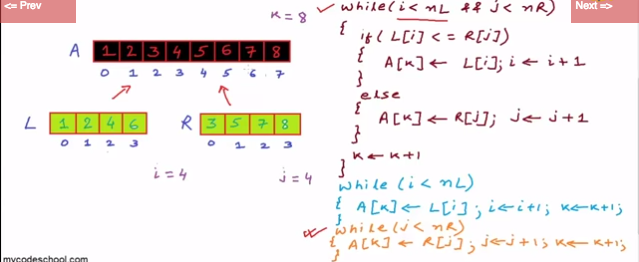 <= Prev
Next =>
K = 8
A 1 2 3 4 5 6 7 8
0 1 2 3 4 5 6 7
L 1 2 4 6
0 1 2 3
R 3 5 7 8
0 1 2 3
i = 4
j = 4
while(i < nL && j < nR)
{ if( L[i] <= R[j])
{ A[K] ← L[i]; i ← i+1
}
else
{ A[K] ← R[j]; j ← j+1
}
K ← K+1
}
while (i < nL)
{ A[K] ← L[i]; i←i+1; K←K+1;
}
while(j < nR)
{ A[K] ← R[j]; j←j+1; K←K+1;
}
mycodeschool.com